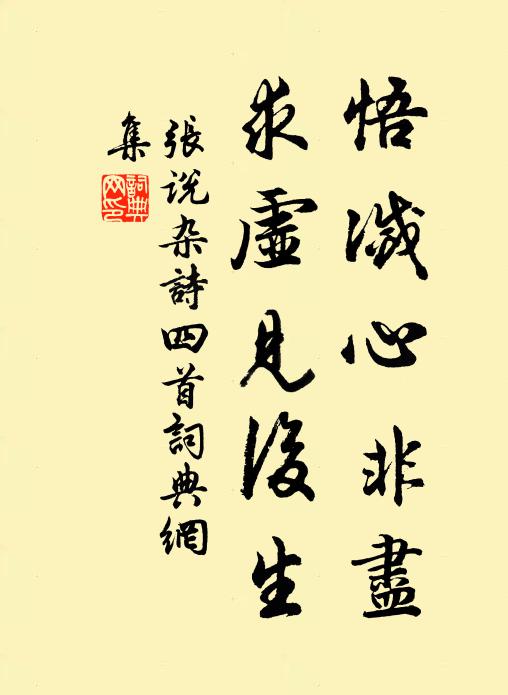 悟滅心非盡
求虛見後生
張說杂詩四首詞典網
集
詞典網印